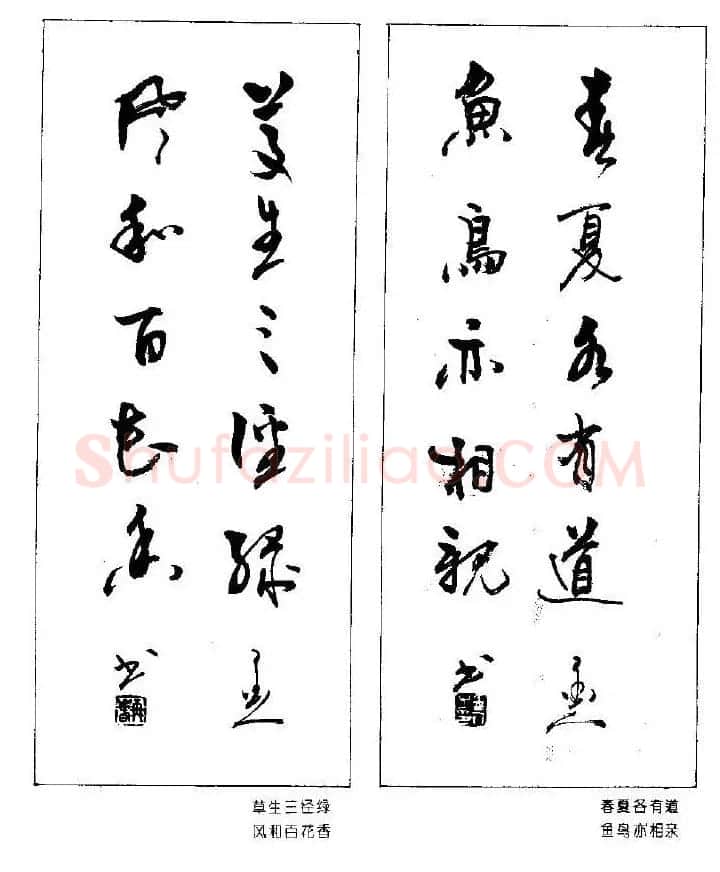 春夏各有道
魚鳥亦相親 书
草生三徑綠
風和百花香 书
春夏各有道
鱼鸟亦相亲
草生三径绿
风和百花香
Shufaziliao.COM